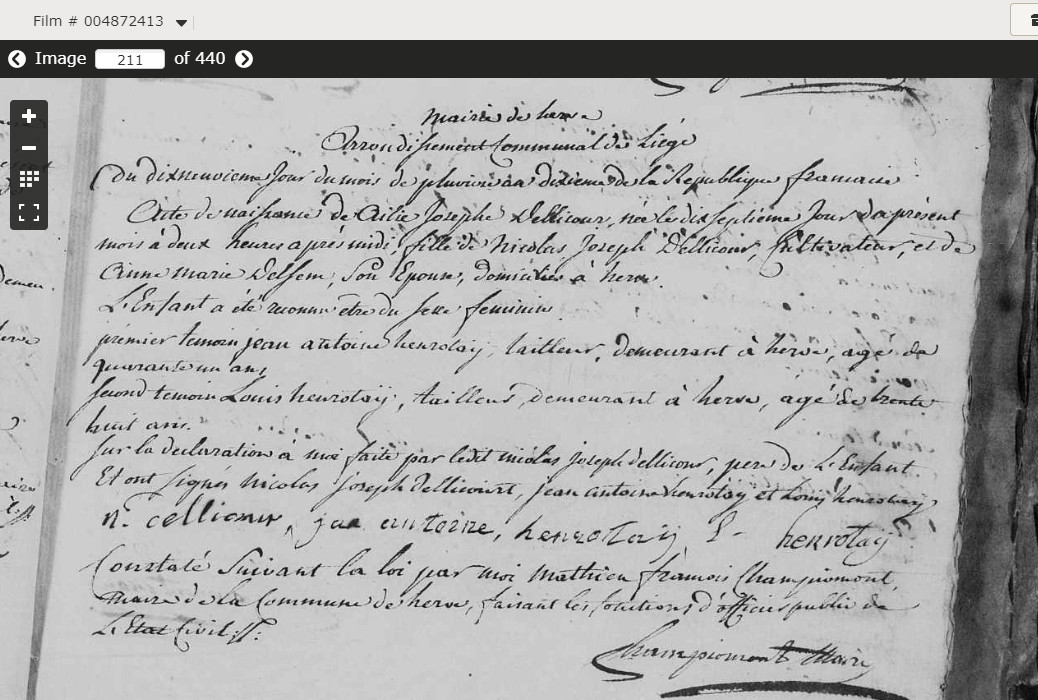 Film # 004872413
Image 211 of 440
Mairie de herve
Arrondissement Communal de Liége
Du dixneuvieme Jour du mois de pluviose an dixieme de la Republique francaise
Acte de naissance de Josephe Dellicour, née le dixseptieme Jour du présent
mois à deux heures après midi, fille de Nicolas Joseph Dellicour, Cultivateur, et de
Anne marie Delsem, Son Epouse, domiciliés à herve.
L'Enfant a été reconnu etre du sexe feminin
premier temoin jean antoine henrotay, tailleur, demeurant à herve, agé de
quarante un ans,
second temoin Louis henrotay, tailleur, demeurant à herve, agé de trente
huit ans.
sur la declaration à moi faite par ledit nicolas joseph dellicour, pere de L'Enfant
Et ont signés nicolas joseph Dellicourt, jean antoine henrotay et Louis henrotay
n. dellicour, jan antoine, henrotay L- henrotay
Constaté Suivant la loi par moi Mathieu francois Championont
maire de la Commune de herve, faisant les fonctions d'officier public de
L'Etat Civil
Championont Maire